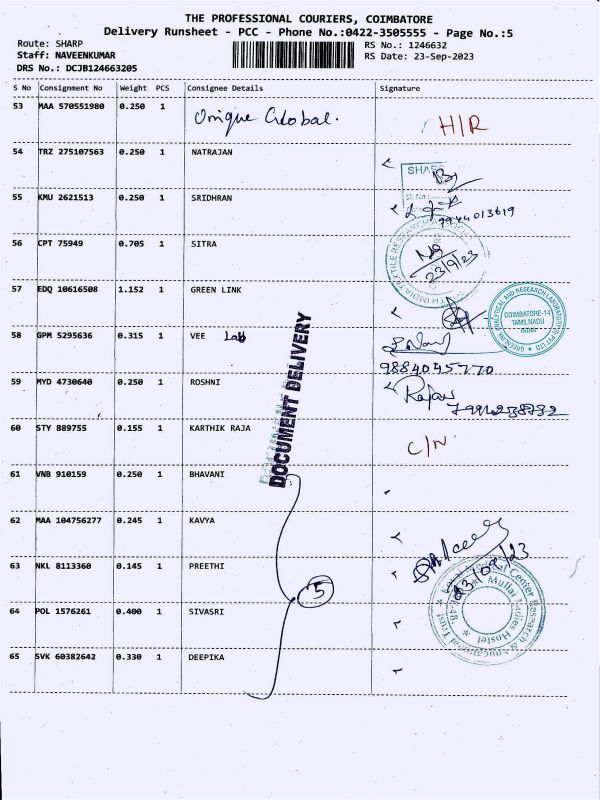 THE PROFESSIONAL COURIERS, COIMBATORE
Delivery Runsheet - PCC - Phone No.:0422-3505555 - Page No.:5
Route: SHARP
RS No.: 1246632
Staff: NAVEENKUMAR
RS Date: 23-Sep-2023
DRS No.: DCJB124663205
S No Consignment No Weight PCS Consignee Details Signature
53 MAA 570551980 0.250 1 Unique Global. H/R
54 TRZ 275107563 0.250 1 NATRAJAN
SHAR
55 KMU 2621513 0.250 1 SRIDHRAN
7944013619
56 CPT 75949 0.705 1 SITRA
23/9/23
57 EDQ 10616508 1.152 1 GREEN LINK
COIMBATORE-14
TAMILNADU
INDIA
58 GPM 5295636 0.315 1 VEE Lab
9884045770
DOCUMENT DELIVERY
59 MYD 4730640 0.250 1 ROSHNI
60 STY 889755 0.155 1 KARTHIK RAJA C/N
61 VNB 910159 0.250 1 BHAVANI
62 MAA 104756277 0.245 1 KAVYA
63 NKL 8113360 0.145 1 PREETHI
5
64 POL 1576261 0.400 1 SIVASRI
65 SVK 60382642 0.330 1 DEEPIKA